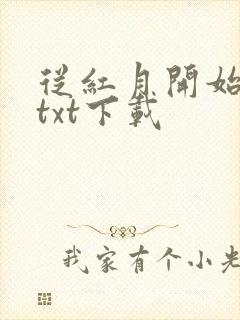 從紅月開始
txt下載
我家有个小羌